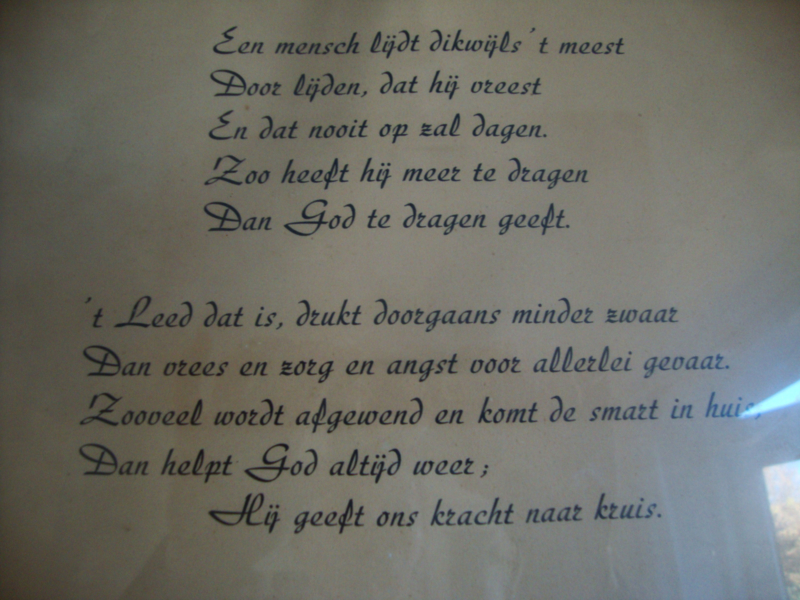 Een mensch lijdt dikwijls 't meest
Door lijden, dat hij vreest
En dat nooit op zal dagen.
Zoo heeft hij meer te dragen
Dan God te dragen geeft.
't Leed dat is, drukt doorgaans minder zwaar
Dan vrees en zorg en angst voor allerlei gevaar.
Zooveel wordt afgewend en komt de smart in huis,
Dan helpt God altijd weer;
Hij geeft ons kracht naar kruis.